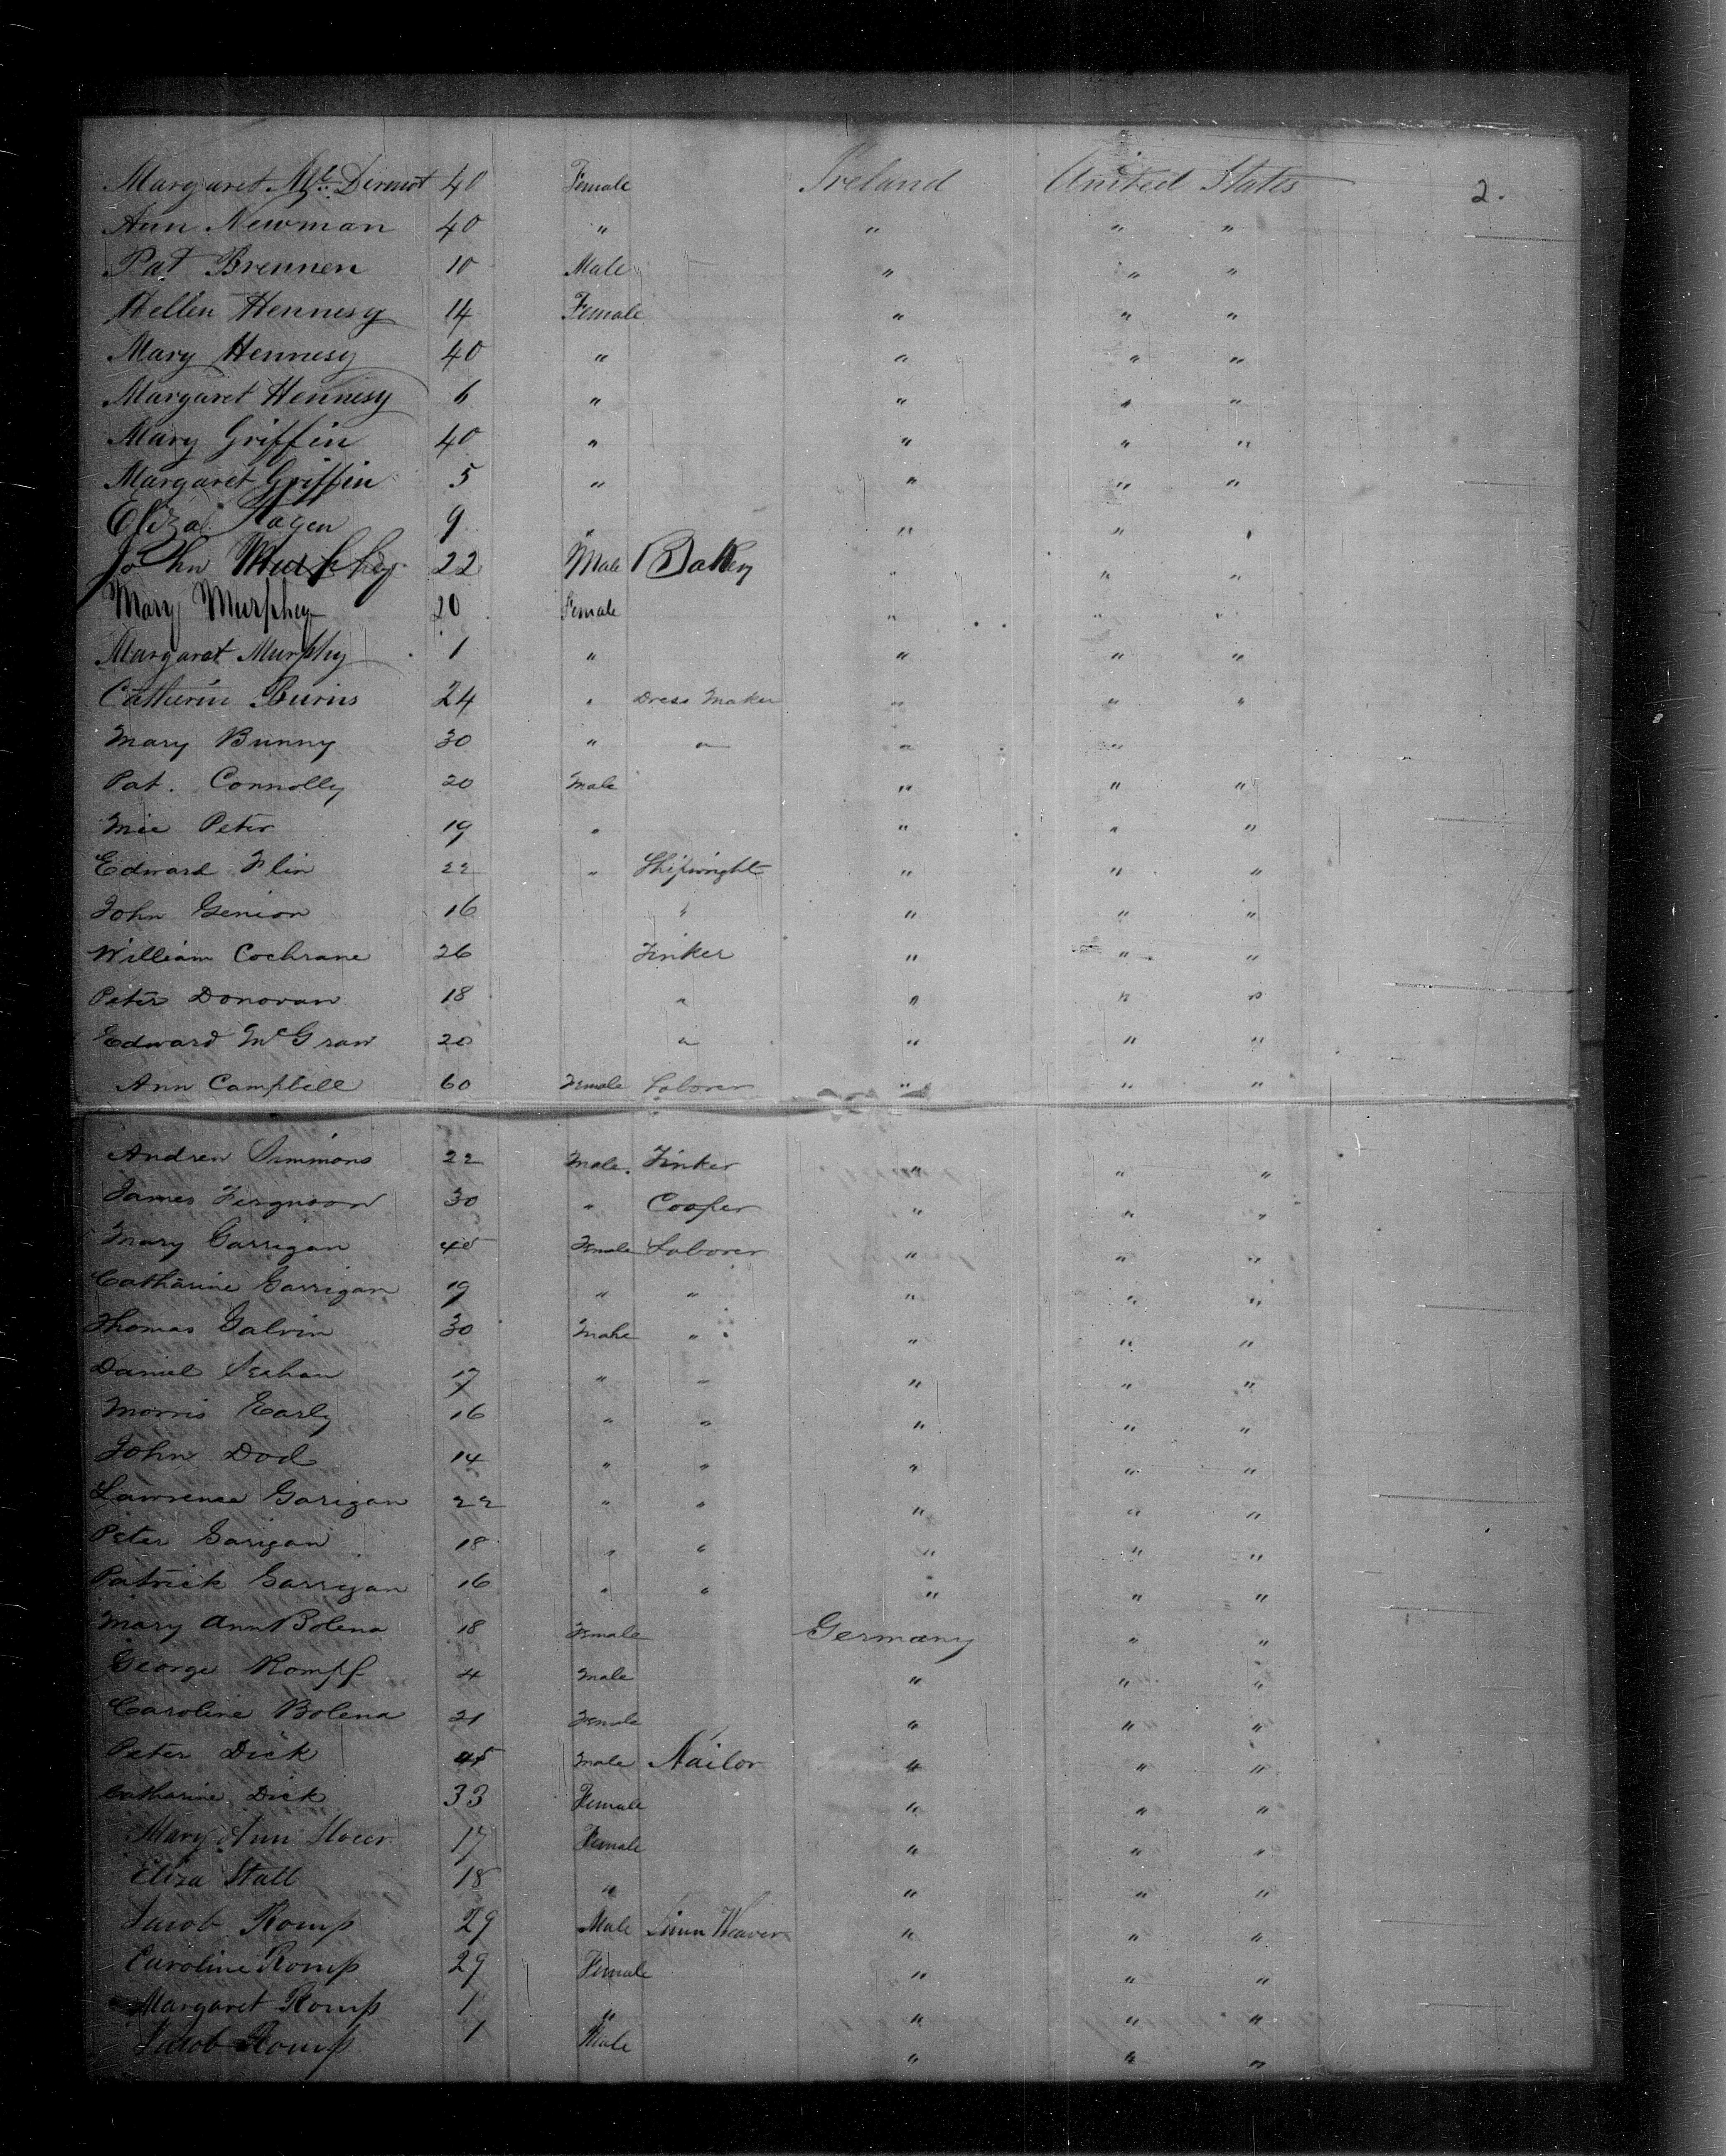 2.
Margaret Mc. Dermot 40 Female Ireland United States
Ann Newman 40 " " " "
Pat Brennen 10 Male " " "
Hellen Hennesy 14 Female " " "
Mary Hennesy 40 " " " "
Margaret Hennesy 6 " " " "
Mary Griffin 40 " " " "
Margaret Griffin 5 " " " "
Eliza Hagen 9 " " " "
John Murphey 22 Male " " "
Mary Murphey 20 Female " " "
Margaret Murphy 1 " " " "
Catherin Burns 24 " Dress Maker " " "
Mary Bunny 30 " " " "
Pat. Connolly 20 Male " " "
Mic Peter 19 " " " "
Edward Flin 22 " Shipwright " " "
John Genion 16 " " " "
William Cochrane 26 Tinker " " "
Peter Donovan 18 " " " "
Edward McGraw 20 " " " "
Ann Campbell 60 Female Laborer " " "
Andrew Simmons 22 Male. Tinker " " "
James Ferguson 30 " Cooper " " "
Mary Garrigan 45 Female Laborer " " "
Catharine Garrigan 19 " " " " "
Thomas Galvin 30 Male " " " "
Daniel 17 " " " " "
Morris Early 16 " " " " "
John Dod 14 " " " " "
Lawrence Garigan 22 " " " " "
Peter Garigan 18 " " " " "
Patrick Garrigan 16 " " " " "
Mary Ann Bolena 18 Female Germany " "
George Rompf 4 Male " " "
Caroline Bolena 21 Female " " "
Peter Dick 45 Male Nailor " " "
Catharine Dick 33 Female " " "
Mary Ann 17 Female " " "
Eliza Stall 18 " " " "
Jacob Romp 29 Male Linen Weaver " " "
Caroline Romp 29 Female " " "
Margaret Romp 1 " " " "
Jacob Romp 1 Male " " "